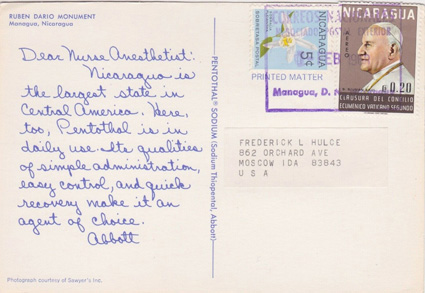 RUBEN DARIO MONUMENT
Managua, Nicaragua
Dear Nurse Anesthetist:
Nicaragua is
the largest state in
Central America. Here,
too, Pentothal is in
daily use – Its qualities
of simple administration,
easy control, and quick
recovery make it an
agent of choice.
Abbott
Photograph courtesy of Sawyer's Inc.
PENTOTHAL® SODIUM (Sodium Thiopental, Abbott)
CORREOS
NICARAGUA
5¢
SOBRETASA POSTAL
PRINTED MATTER
Managua, D. N.
NICARAGUA
AEREO
₡0.20
CLAUSURA DEL CONCILIO
ECUMENICO VATICANO SEGUNDO
FREDERICK L HULCE
862 ORCHARD AVE
MOSCOW IDA 83843
U S A